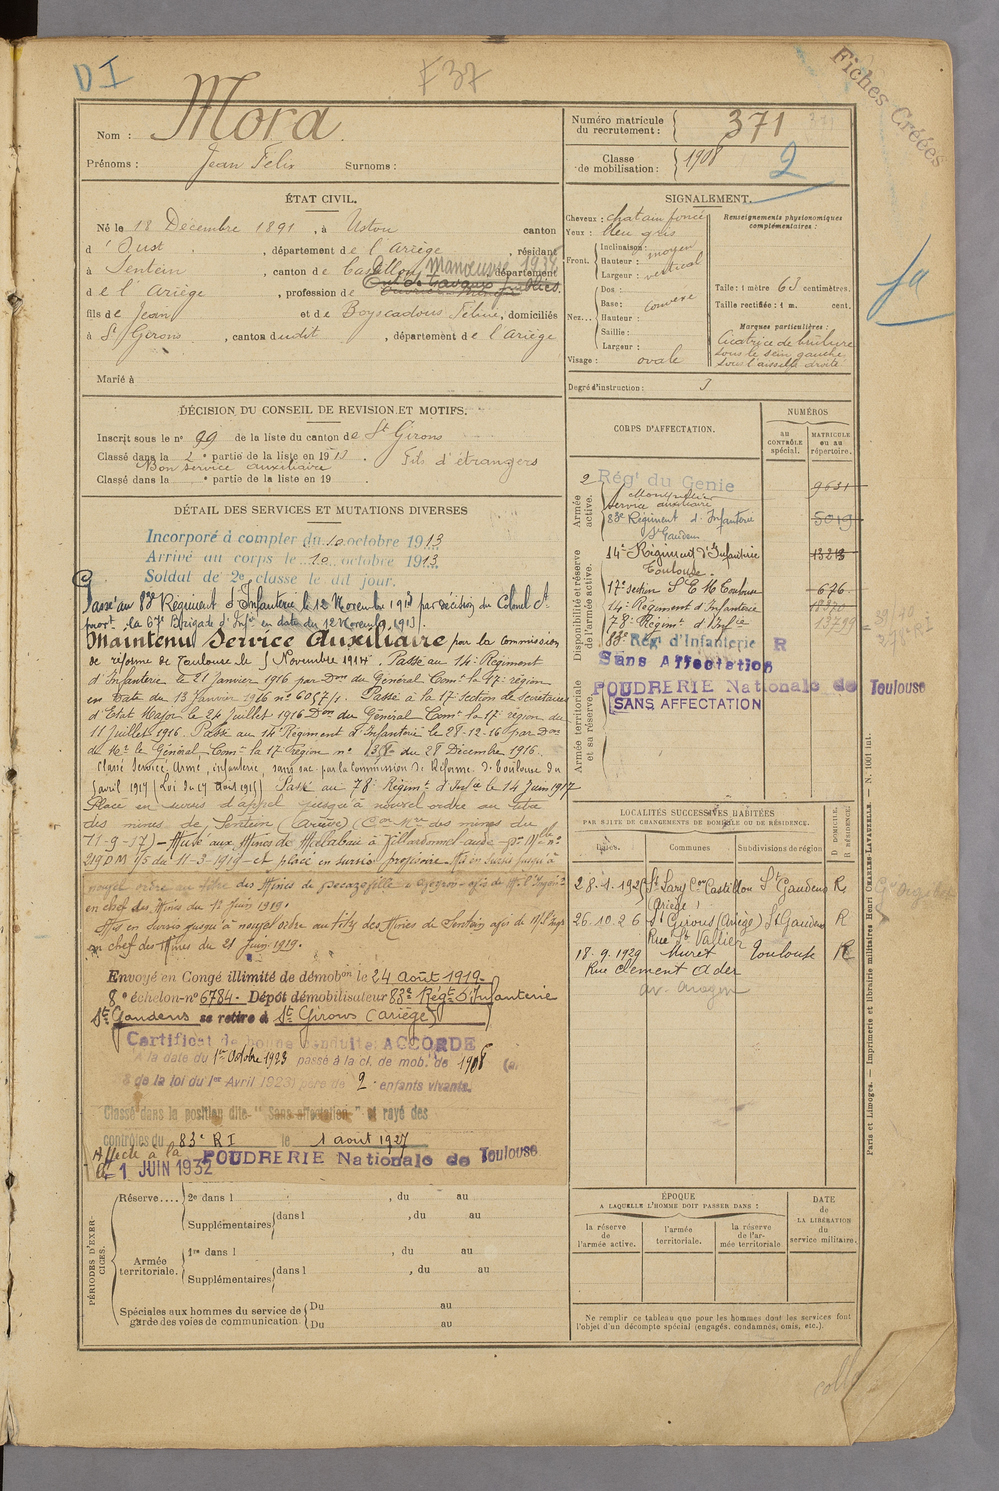 D I
F 37
Fiches Créées
Nom : Mora
Prénoms : Jean Felix Surnoms :
Numéro matricule du recrutement : 371
Classe de mobilisation : 1908
2
ÉTAT CIVIL.
Né le 18 Décembre 1891, à Ustou canton
d'Oust, département de l'Ariège, résidant
à Sentein, canton de Castillon, département
Manoeuvre 1938
de l'Ariège, profession de Ent. de travaux publics
fils de Jean et de Boyscadous Féline, domiciliés
à St Girons, canton dudit, département de l'Ariège
Marié à
SIGNALEMENT.
Cheveux : chatain foncé
Yeux : bleu gris
Front. Inclinaison : moyen
Hauteur :
Largeur : vertical
Nez... Dos :
Base : convexe
Hauteur :
Saillie :
Largeur :
Visage : ovale
Renseignements physionomiques complémentaires :
Taille : 1 mètre 63 centimètres.
Taille rectifiée : 1 m. cent.
Marques particulières :
Cicatrice de brulure
sous le sein gauche
sous l'aisselle droite
Degré d'instruction : 3
DÉCISION DU CONSEIL DE REVISION ET MOTIFS.
Inscrit sous le n° 99 de la liste du canton de St Girons
Classé dans la 2e partie de la liste en 1913. Fils d'étrangers
Bon service auxiliaire
Classé dans la e partie de la liste en 19 .
DÉTAIL DES SERVICES ET MUTATIONS DIVERSES
Incorporé à compter du 10 octobre 1913
Arrivé au corps le 10 octobre 1913.
Soldat de 2e classe le dit jour.
Passé au 83e Régiment d'Infanterie le 12 Novembre 1913 par décision du Colonel Ct
provt la 67e Brigade d'Infie en date du 12 Novembre 1913.
Maintenu Service Auxiliaire par la Commission
de réforme de Toulouse le 5 Novembre 1914. Passé au 14e Régiment
d'Infanterie le 21 Janvier 1916 par Don du Général Comt la 17e région
en date du 13 Janvier 1916 n° 6057/1. Passé à la 17e Section de Secrétaires
d'Etat Major le 24 Juillet 1916 Don du Général Comt la 17e région du
11 Juillet 1916. Passé au 14e Régiment d'Infanterie le 28-12-16 par Don
de Mr le Général Comt la 17e Région n° du 28 Décembre 1916.
Classé Service Armé, infanterie, sans sac par la Commission de Réforme de Toulouse du
avril 1917 (Loi du 17 Août 1915) Passé au 78e Régimt d'Infie le 14 Juin 1917
Placé en sursis d'appel jusqu'à nouvel ordre au titre
des mines de Sentein (Ariège) (Con Mre des mines du
11-9-17) - Muté aux Mines de Mellabau à Villardonnel Aude
219 DM 1/5 du 11-3-1919 et placé en sursis provisoire. Mis en sursis jusqu'à
nouvel ordre au titre des Mines de Decazeville
en chef des Mines du 12 Juin 1919.
Mis en sursis jusqu'à nouvel ordre au titre des Mines de Sentein avis de Mr l'Ingr
en chef des Mines du 21 Juin 1919.
Envoyé en Congé illimité de démobon le 24 Août 1919
8e échelon n° 6784. Dépôt démobilisateur 83e Régt d'Infanterie
St Gaudens se retire à St Girons (Ariège)
Certificat de bonne conduite ACCORDÉ
A la date du 1er Octobre 1923 passé à la cl. de mob. de 1908
de la loi du 1er Avril 1923) père de 2 enfants vivants.
Classé dans la position dite "Sans affectation" et rayé des
contrôles du 83e RI le 1 août 1927
Affecté à la POUDRERIE Nationale de Toulouse
le 1 JUIN 1932
CORPS D'AFFECTATION.
NUMÉROS
AU CONTRÔLE spécial.
MATRICULE ou au répertoire.
Armée active.
2 Régt du Genie 9631
Montpellier
Service auxiliaire
83e Régiment d'Infanterie 5019
St Gaudens
Disponibilité et réserve de l'armée active.
14e Régiment d'Infanterie
Toulouse.
17e section S E M Toulouse 676
14e Régiment d'Infanterie
78e Régimt d'Infie 13799
83e Régt d'Infanterie R
Sans Affectation
Armée territoriale et sa réserve.
POUDRERIE Nationale de Toulouse
SANS AFFECTATION
LOCALITÉS SUCCESSIVES HABITÉES
PAR SUITE DE CHANGEMENTS DE DOMICILE OU DE RÉSIDENCE.
Dates. Communes Subdivisions de région D DOMICILE. R RÉSIDENCE.
28-1-1925 St Lary Con Castillon St Gaudens R
Ariège
26.10.26 St Girons (Ariège) St Gaudens R
Rue St Vallier
18-9-1929 Muret Toulouse R
Rue Clement Ader
av. Aragon
Paris et Limoges. — Imprimerie et librairie militaires Henri CHARLES-LAVAUZELLE. — N. 1001 bis.
PÉRIODES D'EXERCICES.
Réserve.... 2e dans l , du au
Supplémentaires dans l , du au
Armée territoriale. 1re dans l , du au
Supplémentaires dans l , du au
Spéciales aux hommes du service de garde des voies de communication Du au
Du au
ÉPOQUE
A LAQUELLE L'HOMME DOIT PASSER DANS :
la réserve de l'armée active.
l'armée territoriale.
la réserve de l'armée territoriale
DATE de LA LIBÉRATION du service militaire.
Ne remplir ce tableau que pour les hommes dont les services font
l'objet d'un décompte spécial (engagés, condamnés, omis, etc.).